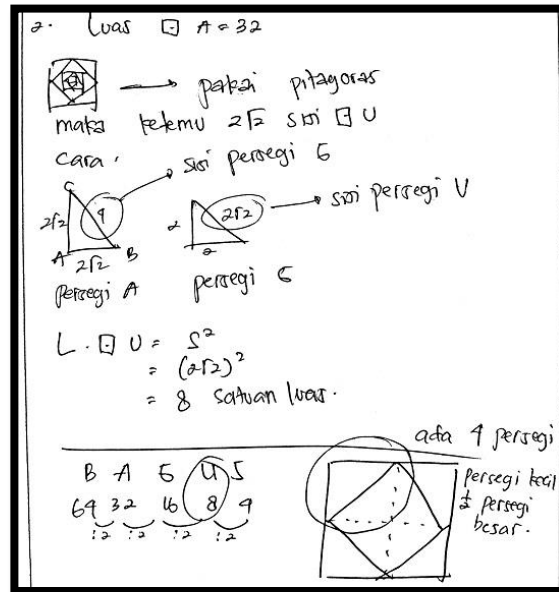 2. Luas □ A = 32
→ pakai pitagoras
maka ketemu 2√2 sisi □ U
Cara,
sisi persegi G
C
2√2
4
A
2√2
B
persegi A
2
2√2
2
sisi persegi U
persegi G
L. □ U = S²
= (2√2)²
= 8 satuan luas.
B A G U S
64 32 16 8 4
:2 :2 :2 :2
ada 4 persegi
persegi kecil
½ persegi
besar.